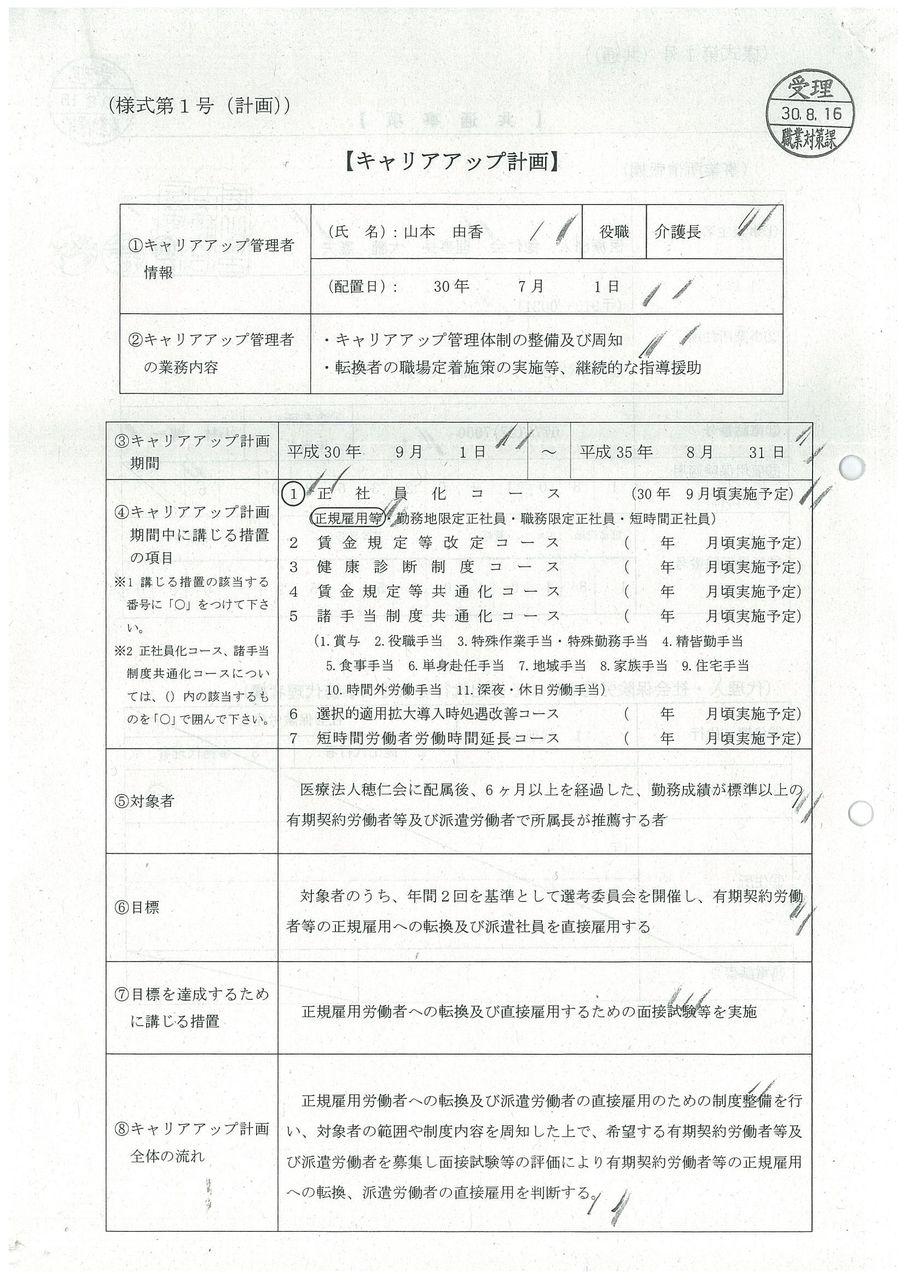 (様式第１号（計画))
受理
30.8.16
職業対策課
【キャリアアップ計画】
①キャリアアップ管理者
情報
(氏　名)：山本　由香
役職
介護長
(配置日)：　30年　7月　1日
②キャリアアップ管理者
の業務内容
・キャリアアップ管理体制の整備及び周知
・転換者の職場定着施策の実施等、継続的な指導援助
③キャリアアップ計画
期間
平成30年　9月　1日　～　平成35年　8月　31日
④キャリアアップ計画
期間中に講じる措置
の項目
※1 講じる措置の該当する
番号に「〇」をつけて下さ
い。
※2 正社員化コース、諸手当
制度共通化コースについ
ては、()内の該当するも
のを「〇」で囲んで下さい。
①　正社員化コース　(30年　9月頃実施予定)
(正規雇用等・勤務地限定正社員・職務限定正社員・短時間正社員)
2　賃金規定等改定コース　(　年　月頃実施予定)
3　健康診断制度コース　(　年　月頃実施予定)
4　賃金規定等共通化コース　(　年　月頃実施予定)
5　諸手当制度共通化コース　(　年　月頃実施予定)
(1.賞与　2.役職手当　3.特殊作業手当・特殊勤務手当　4.精皆勤手当
5.食事手当　6.単身赴任手当　7.地域手当　8.家族手当　9.住宅手当
10.時間外労働手当　11.深夜・休日労働手当)
6　選択的適用拡大導入時処遇改善コース　(　年　月頃実施予定)
7　短時間労働者労働時間延長コース　(　年　月頃実施予定)
⑤対象者
医療法人穂仁会に配属後、6ヶ月以上を経過した、勤務成績が標準以上の
有期契約労働者等及び派遣労働者で所属長が推薦する者
⑥目標
対象者のうち、年間２回を基準として選考委員会を開催し、有期契約労働
者等の正規雇用への転換及び派遣社員を直接雇用する
⑦目標を達成するため
に講じる措置
正規雇用労働者への転換及び直接雇用するための面接試験等を実施
⑧キャリアアップ計画
全体の流れ
正規雇用労働者への転換及び派遣労働者の直接雇用のための制度整備を行
い、対象者の範囲や制度内容を周知した上で、希望する有期契約労働者等及
び派遣労働者を募集し面接試験等の評価により有期契約労働者等の正規雇用
への転換、派遣労働者の直接雇用を判断する。